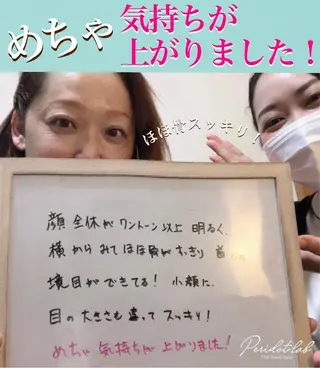 めちゃ 気持ちが
上がりました！
ほほ骨スッキリ！
顔全体がワントーン以上 明るく、
横からみてほほ骨がすっきり 首
境目ができてる！ 小顔に、
目の大きさも違ってスッキリ！
めちゃ 気持ちが 上がりました！
Peridot lab